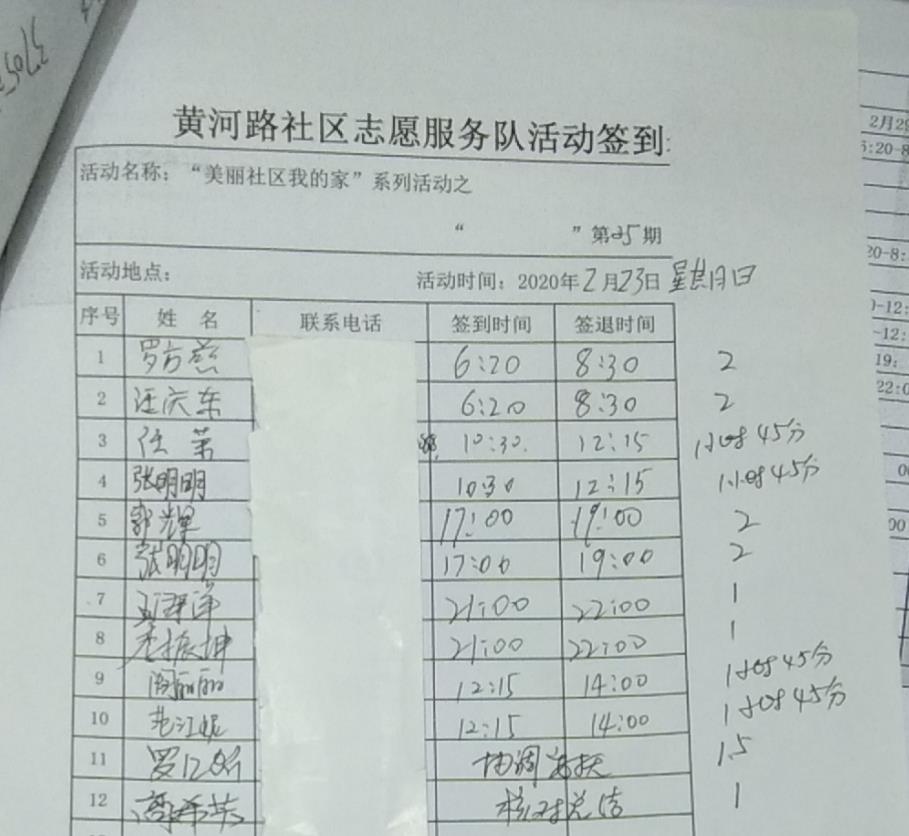 黄河路社区志愿服务队活动签到
活动名称：“美丽社区我的家”系列活动之
“ ”第25期
活动地点： 活动时间：2020年2月23日 星期日
序号 姓名 联系电话 签到时间 签退时间
1 罗方慈 6:20 8:30 2
2 汪庆东 6:20 8:30 2
3 任 10:30 12:15 1小时45分
4 张明明 1030 12:15 1小时45分
5 郭辉 17:00 19:00 2
6 张明明 17:00 19:00 2
7 21:00 22:00 1
8 李振坤 21:00 22:00 1
9 周丽丽 12:15 14:00 1小时45分
10 范江妮 12:15 14:00 1小时45分
11 罗 协调 1.5
12 高 核对总结 1
2月29
5:20-8
20-8:
0-12:
-12:
19:
22:0